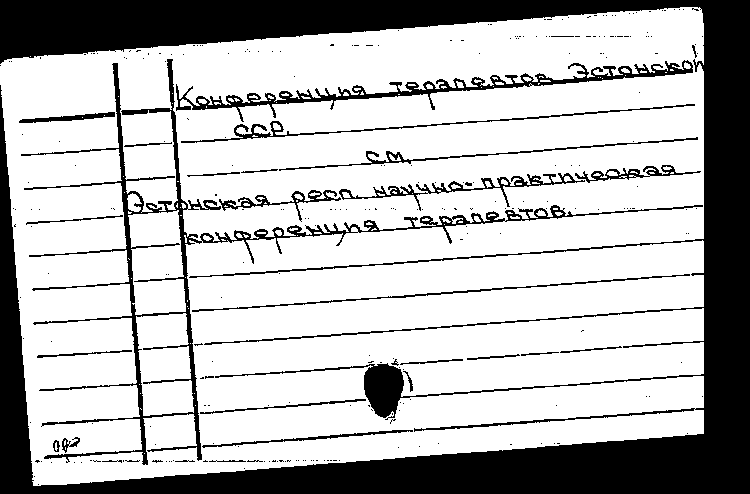 Конференция терапевтов Эстонской
ССР.
см.
Эстонская респ. научно-практическая
конференция терапевтов.